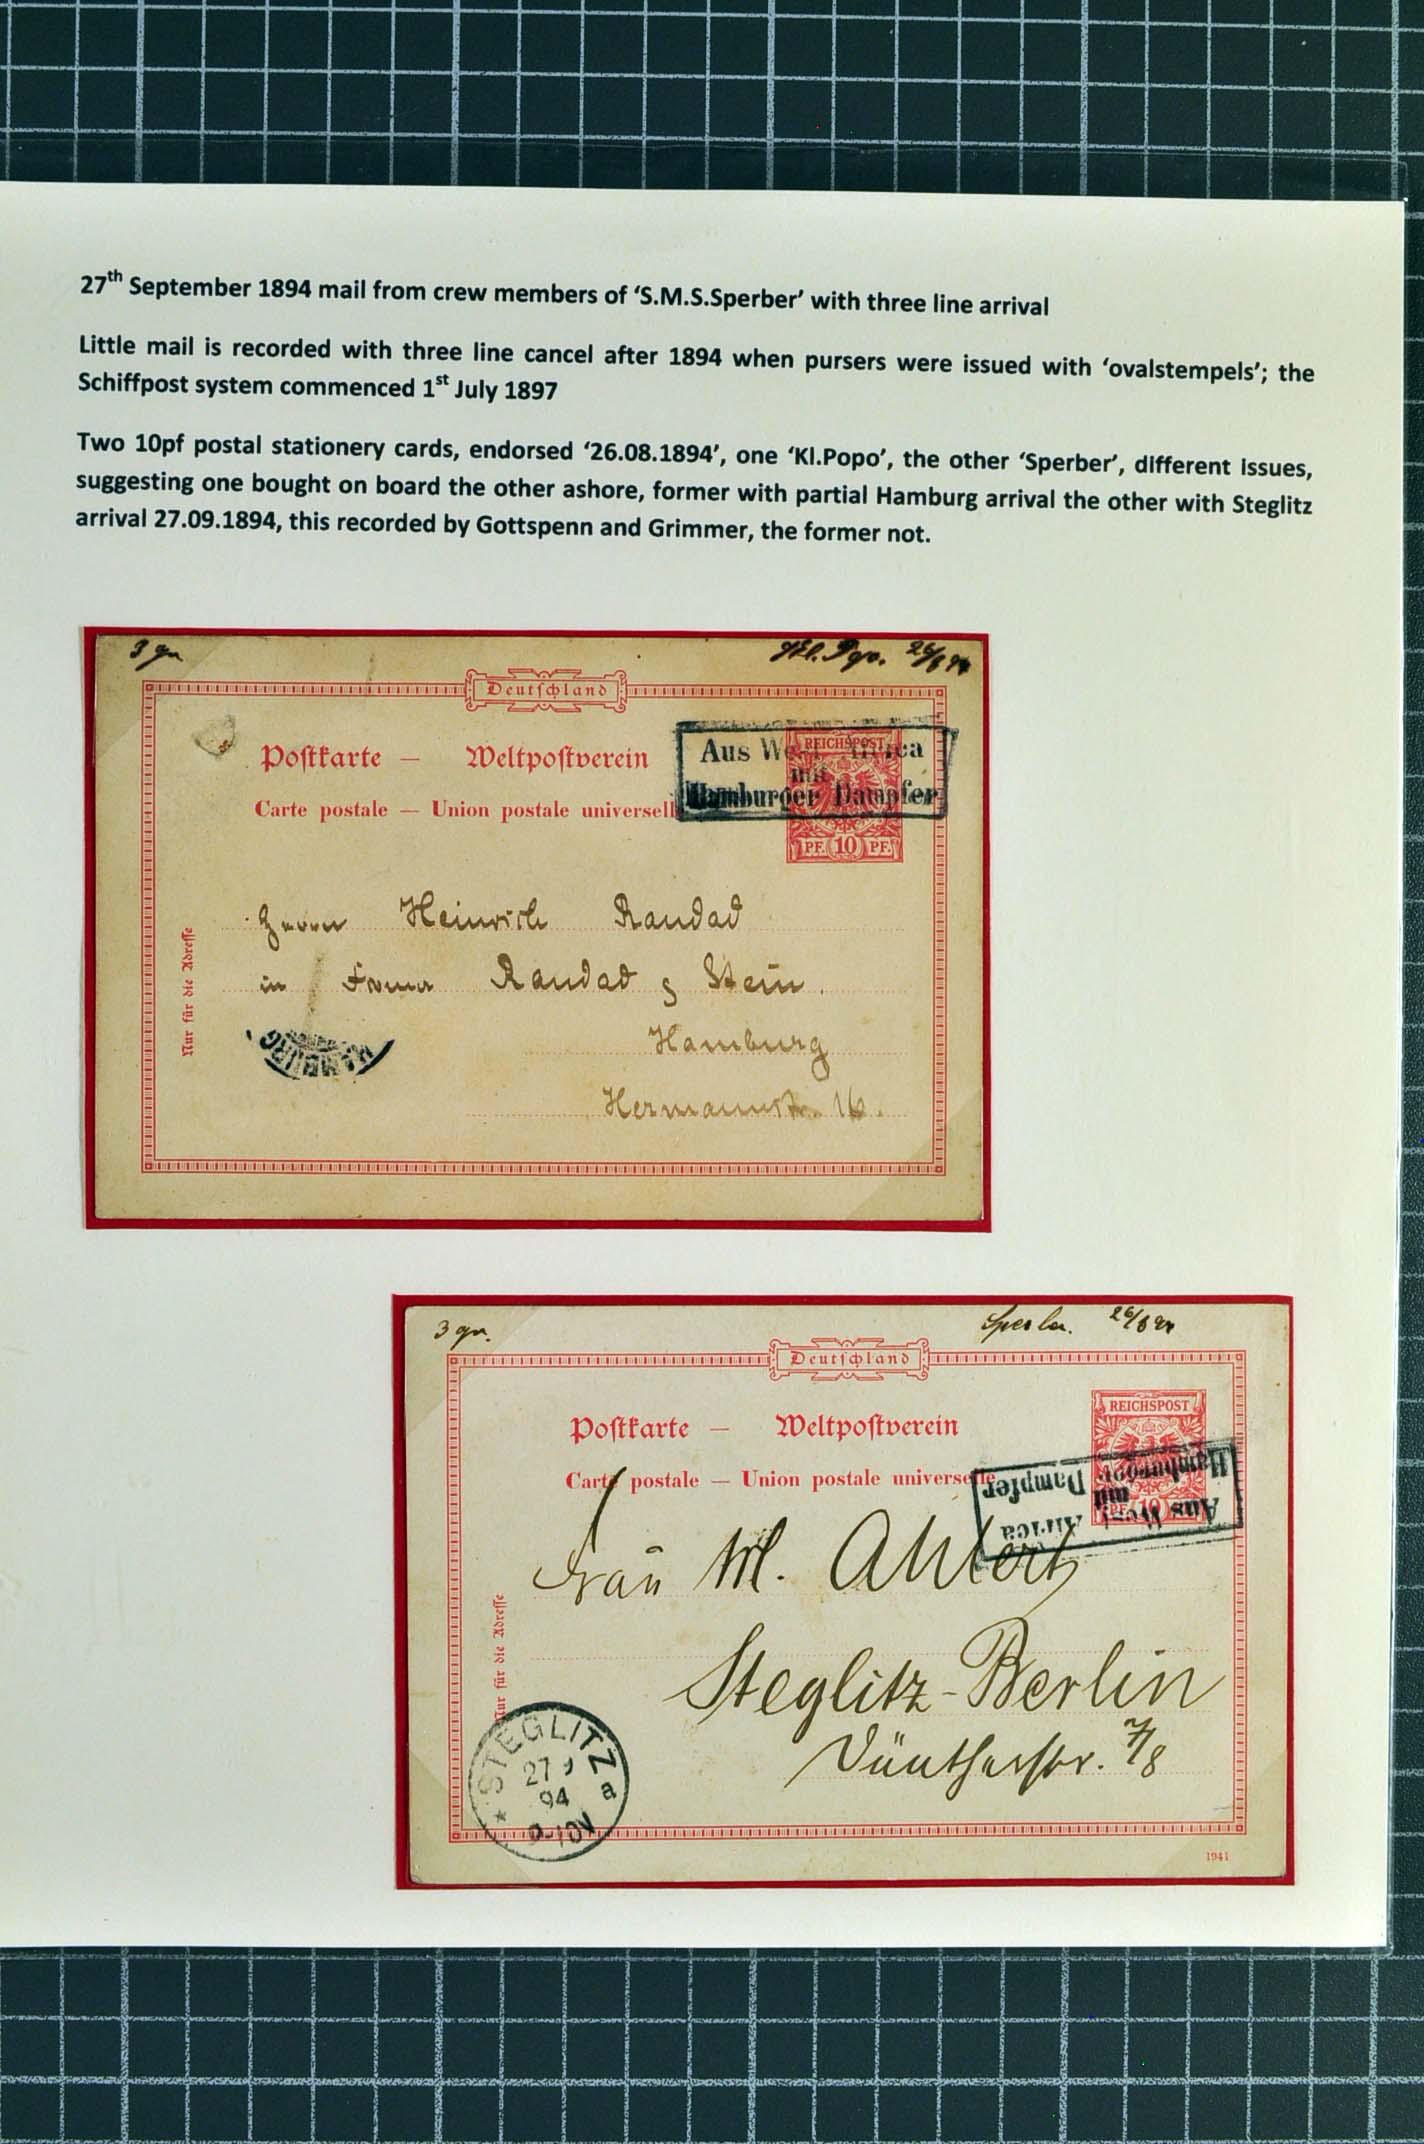 27th September 1894 mail from crew members of ‘S.M.S.Sperber’ with three line arrival
Little mail is recorded with three line cancel after 1894 when pursers were issued with ‘ovalstempels’; the
Schiffpost system commenced 1st July 1897
Two 10pf postal stationery cards, endorsed ‘26.08.1894’, one ‘Kl.Popo’, the other ‘Sperber’, different issues,
suggesting one bought on board the other ashore, former with partial Hamburg arrival the other with Steglitz
arrival 27.09.1894, this recorded by Gottspenn and Grimmer, the former not.
3 gr. Kl. Popo. 26/8 94
Deutſchland
Poſtkarte — Weltpoſtverein
Carte postale — Union postale universelle
REICHSPOST
PF. 10 PF.
Aus West Africa
mit
Hamburger Dampfer
Herrn Heinrich Randad
in Firma Randad & Stein.
Hamburg
Hermannstr. 16.
Nur für die Adreſſe
HAMBURG
3 gr. Sperber. 26/8 94
Deutſchland
Poſtkarte — Weltpoſtverein
Carte postale — Union postale universelle
REICHSPOST
PF. 10
Aus West Africa
mit
Hamburger Dampfer
Frau M. Ahlert
Steglitz-Berlin
7/8
Nur für die Adreſſe
STEGLITZ
27 9
94
a
1941